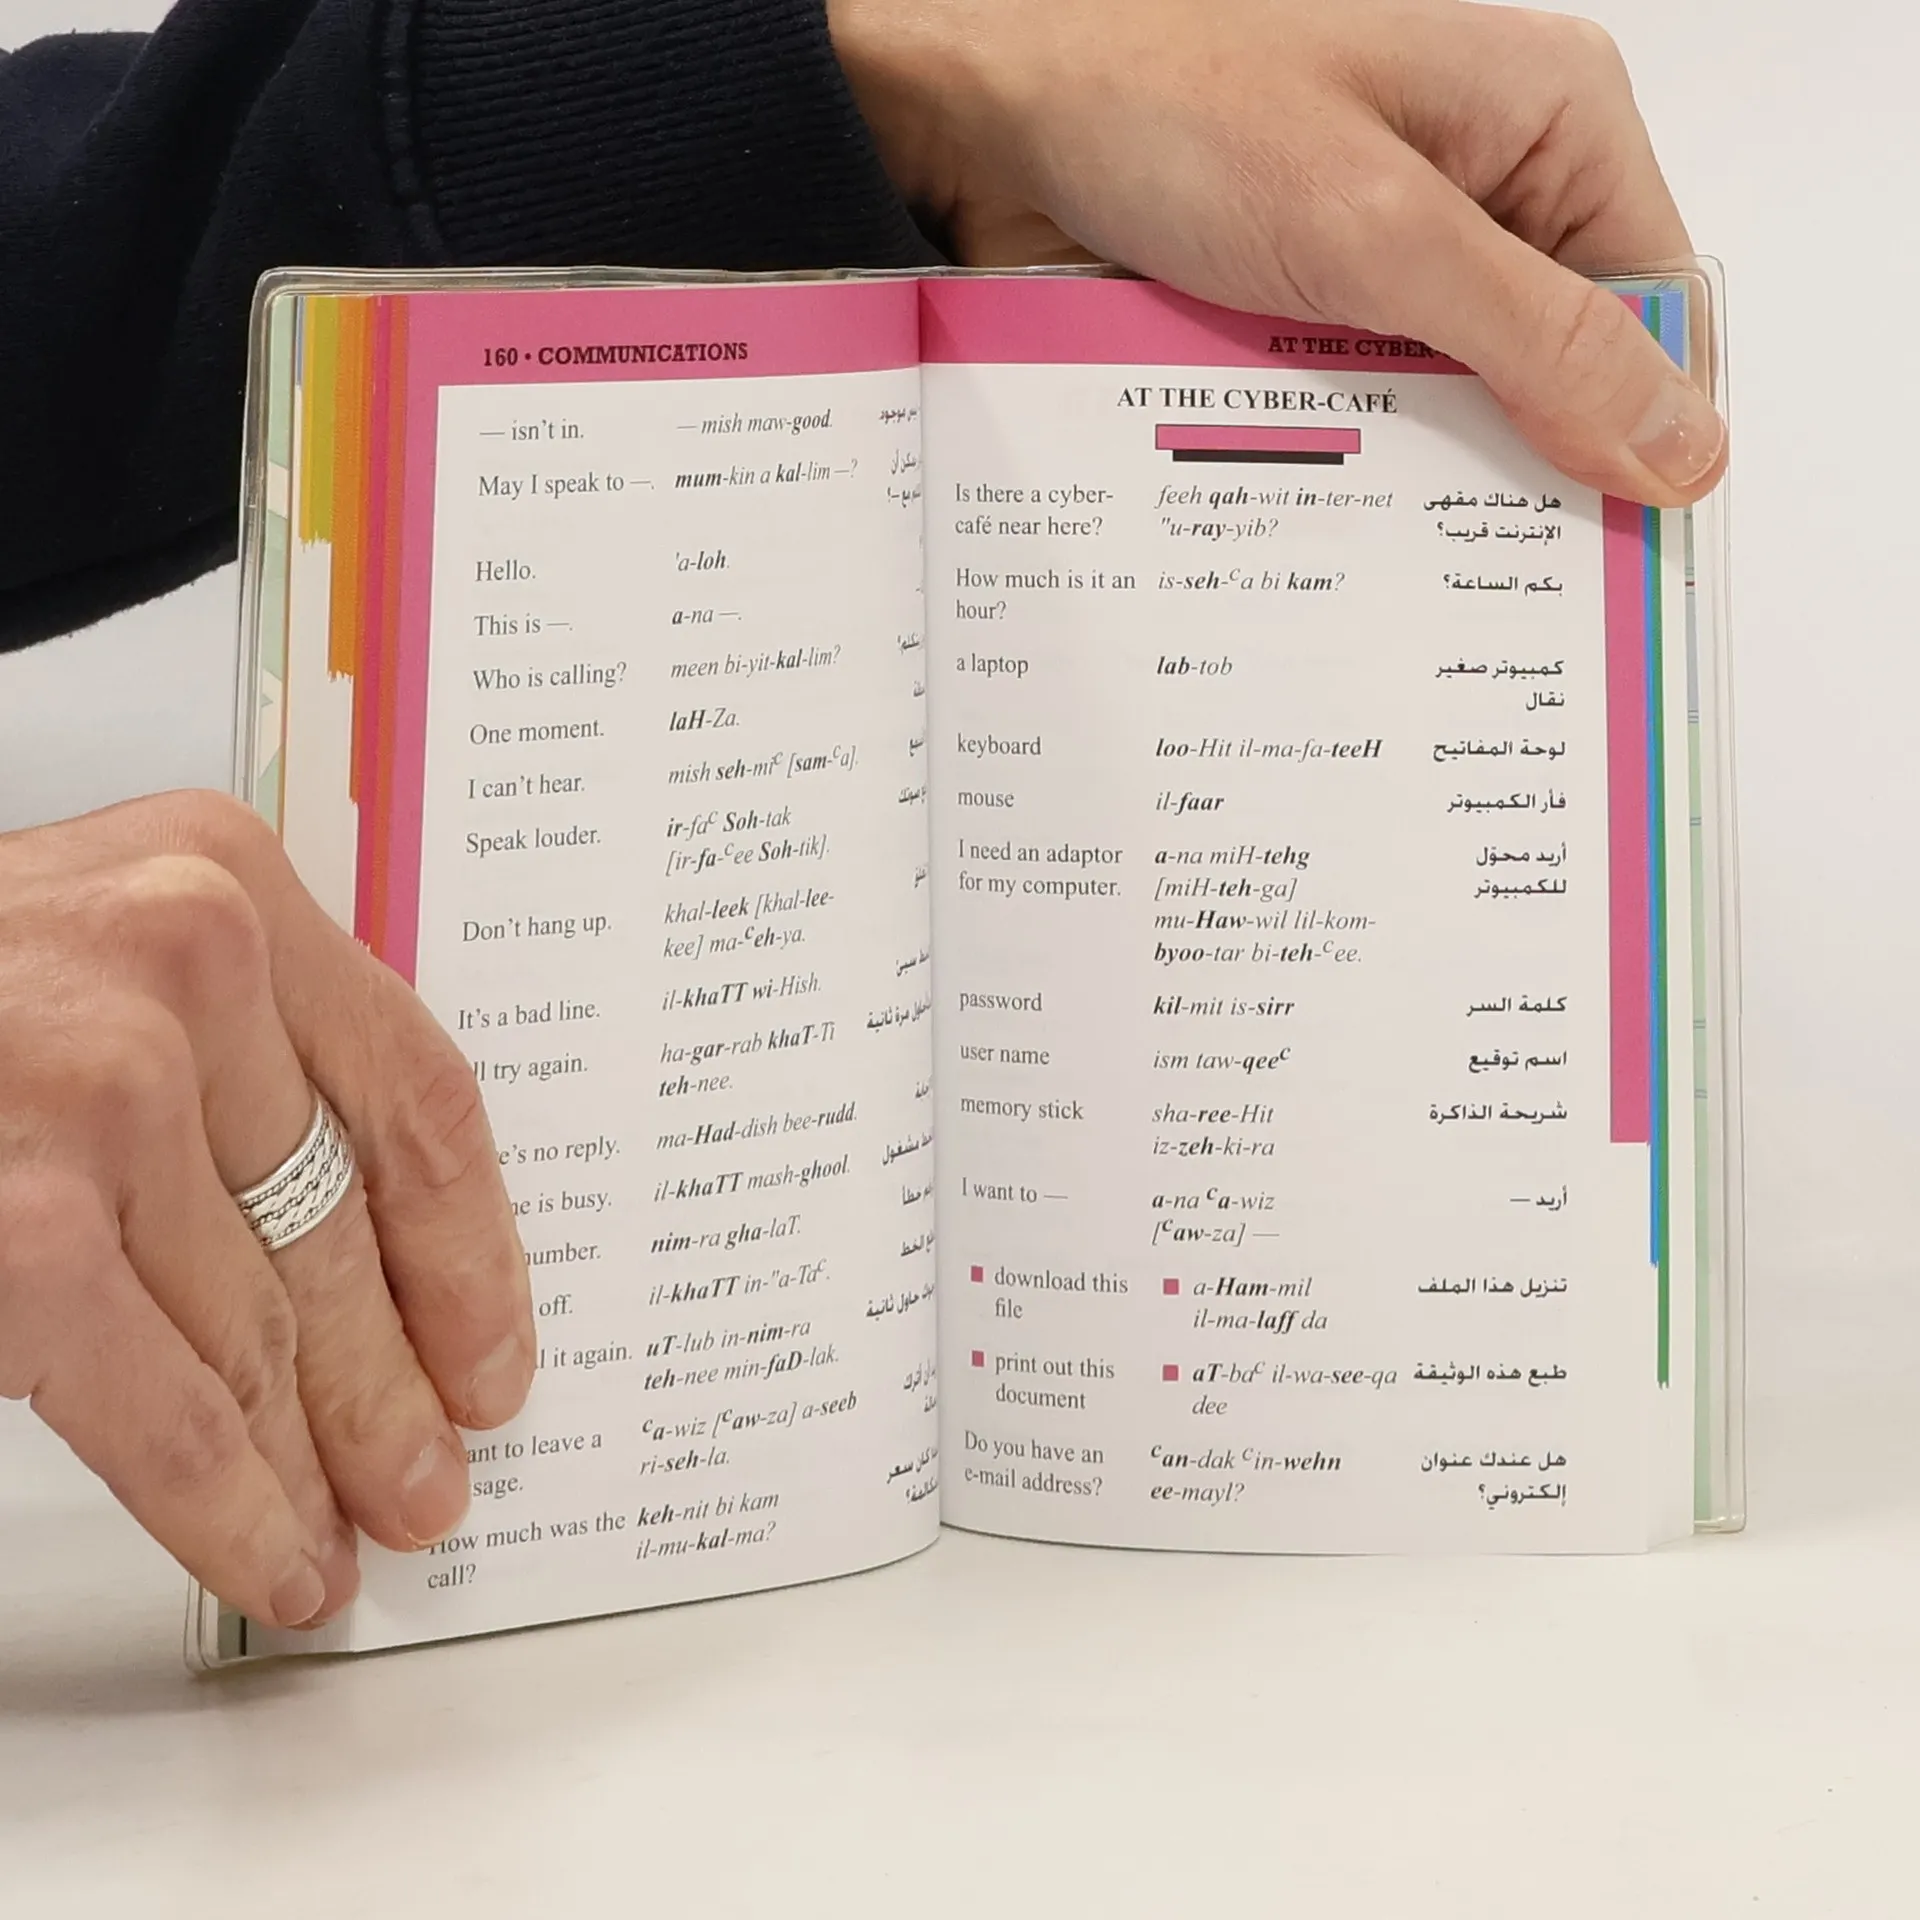 160 • COMMUNICATIONS
— isn't in. — mish maw-good.
May I speak to —. mum-kin a kal-lim —?
Hello. 'a-loh.
This is —. a-na —.
Who is calling? meen bi-yit-kal-lim?
One moment. laH-Za.
I can't hear. mish seh-miᶜ [sam-ᶜa].
Speak louder. ir-faᶜ Soh-tak
[ir-fa-ᶜee Soh-tik].
Don't hang up. khal-leek [khal-lee-
kee] ma-ᶜeh-ya.
It's a bad line. il-khaTT wi-Hish.
try again. ha-gar-rab khaT-Ti
teh-nee.
no reply. ma-Had-dish bee-rudd.
is busy. il-khaTT mash-ghool.
number. nim-ra gha-laT.
off. il-khaTT in-"a-Taᶜ.
it again. uT-lub in-nim-ra
teh-nee min-faD-lak.
to leave a ᶜa-wiz [ᶜaw-za] a-seeb
ri-seh-la.
How much was the keh-nit bi kam
call? il-mu-kal-ma?
AT THE CYBER-
AT THE CYBER-CAFÉ
Is there a cyber- feeh qah-wit in-ter-net هل هناك مقهى
café near here? "u-ray-yib? الإنترنت قريب؟
How much is it an is-seh-ᶜa bi kam? بكم الساعة؟
hour?
a laptop lab-tob كمبيوتر صغير
نقال
keyboard loo-Hit il-ma-fa-teeH لوحة المفاتيح
mouse il-faar فأر الكمبيوتر
I need an adaptor a-na miH-tehg أريد محوّل
for my computer. [miH-teh-ga] للكمبيوتر
mu-Haw-wil lil-kom-
byoo-tar bi-teh-ᶜee.
password kil-mit is-sirr كلمة السر
user name ism taw-qeeᶜ اسم توقيع
memory stick sha-ree-Hit شريحة الذاكرة
iz-zeh-ki-ra
I want to — a-na ᶜa-wiz أريد —
[ᶜaw-za] —
■ download this ■ a-Ham-mil تنزيل هذا الملف
file il-ma-laff da
■ print out this ■ aT-baᶜ il-wa-see-qa طبع هذه الوثيقة
document dee
Do you have an ᶜan-dak ᶜin-wehn هل عندك عنوان
e-mail address? ee-mayl? إلكتروني؟